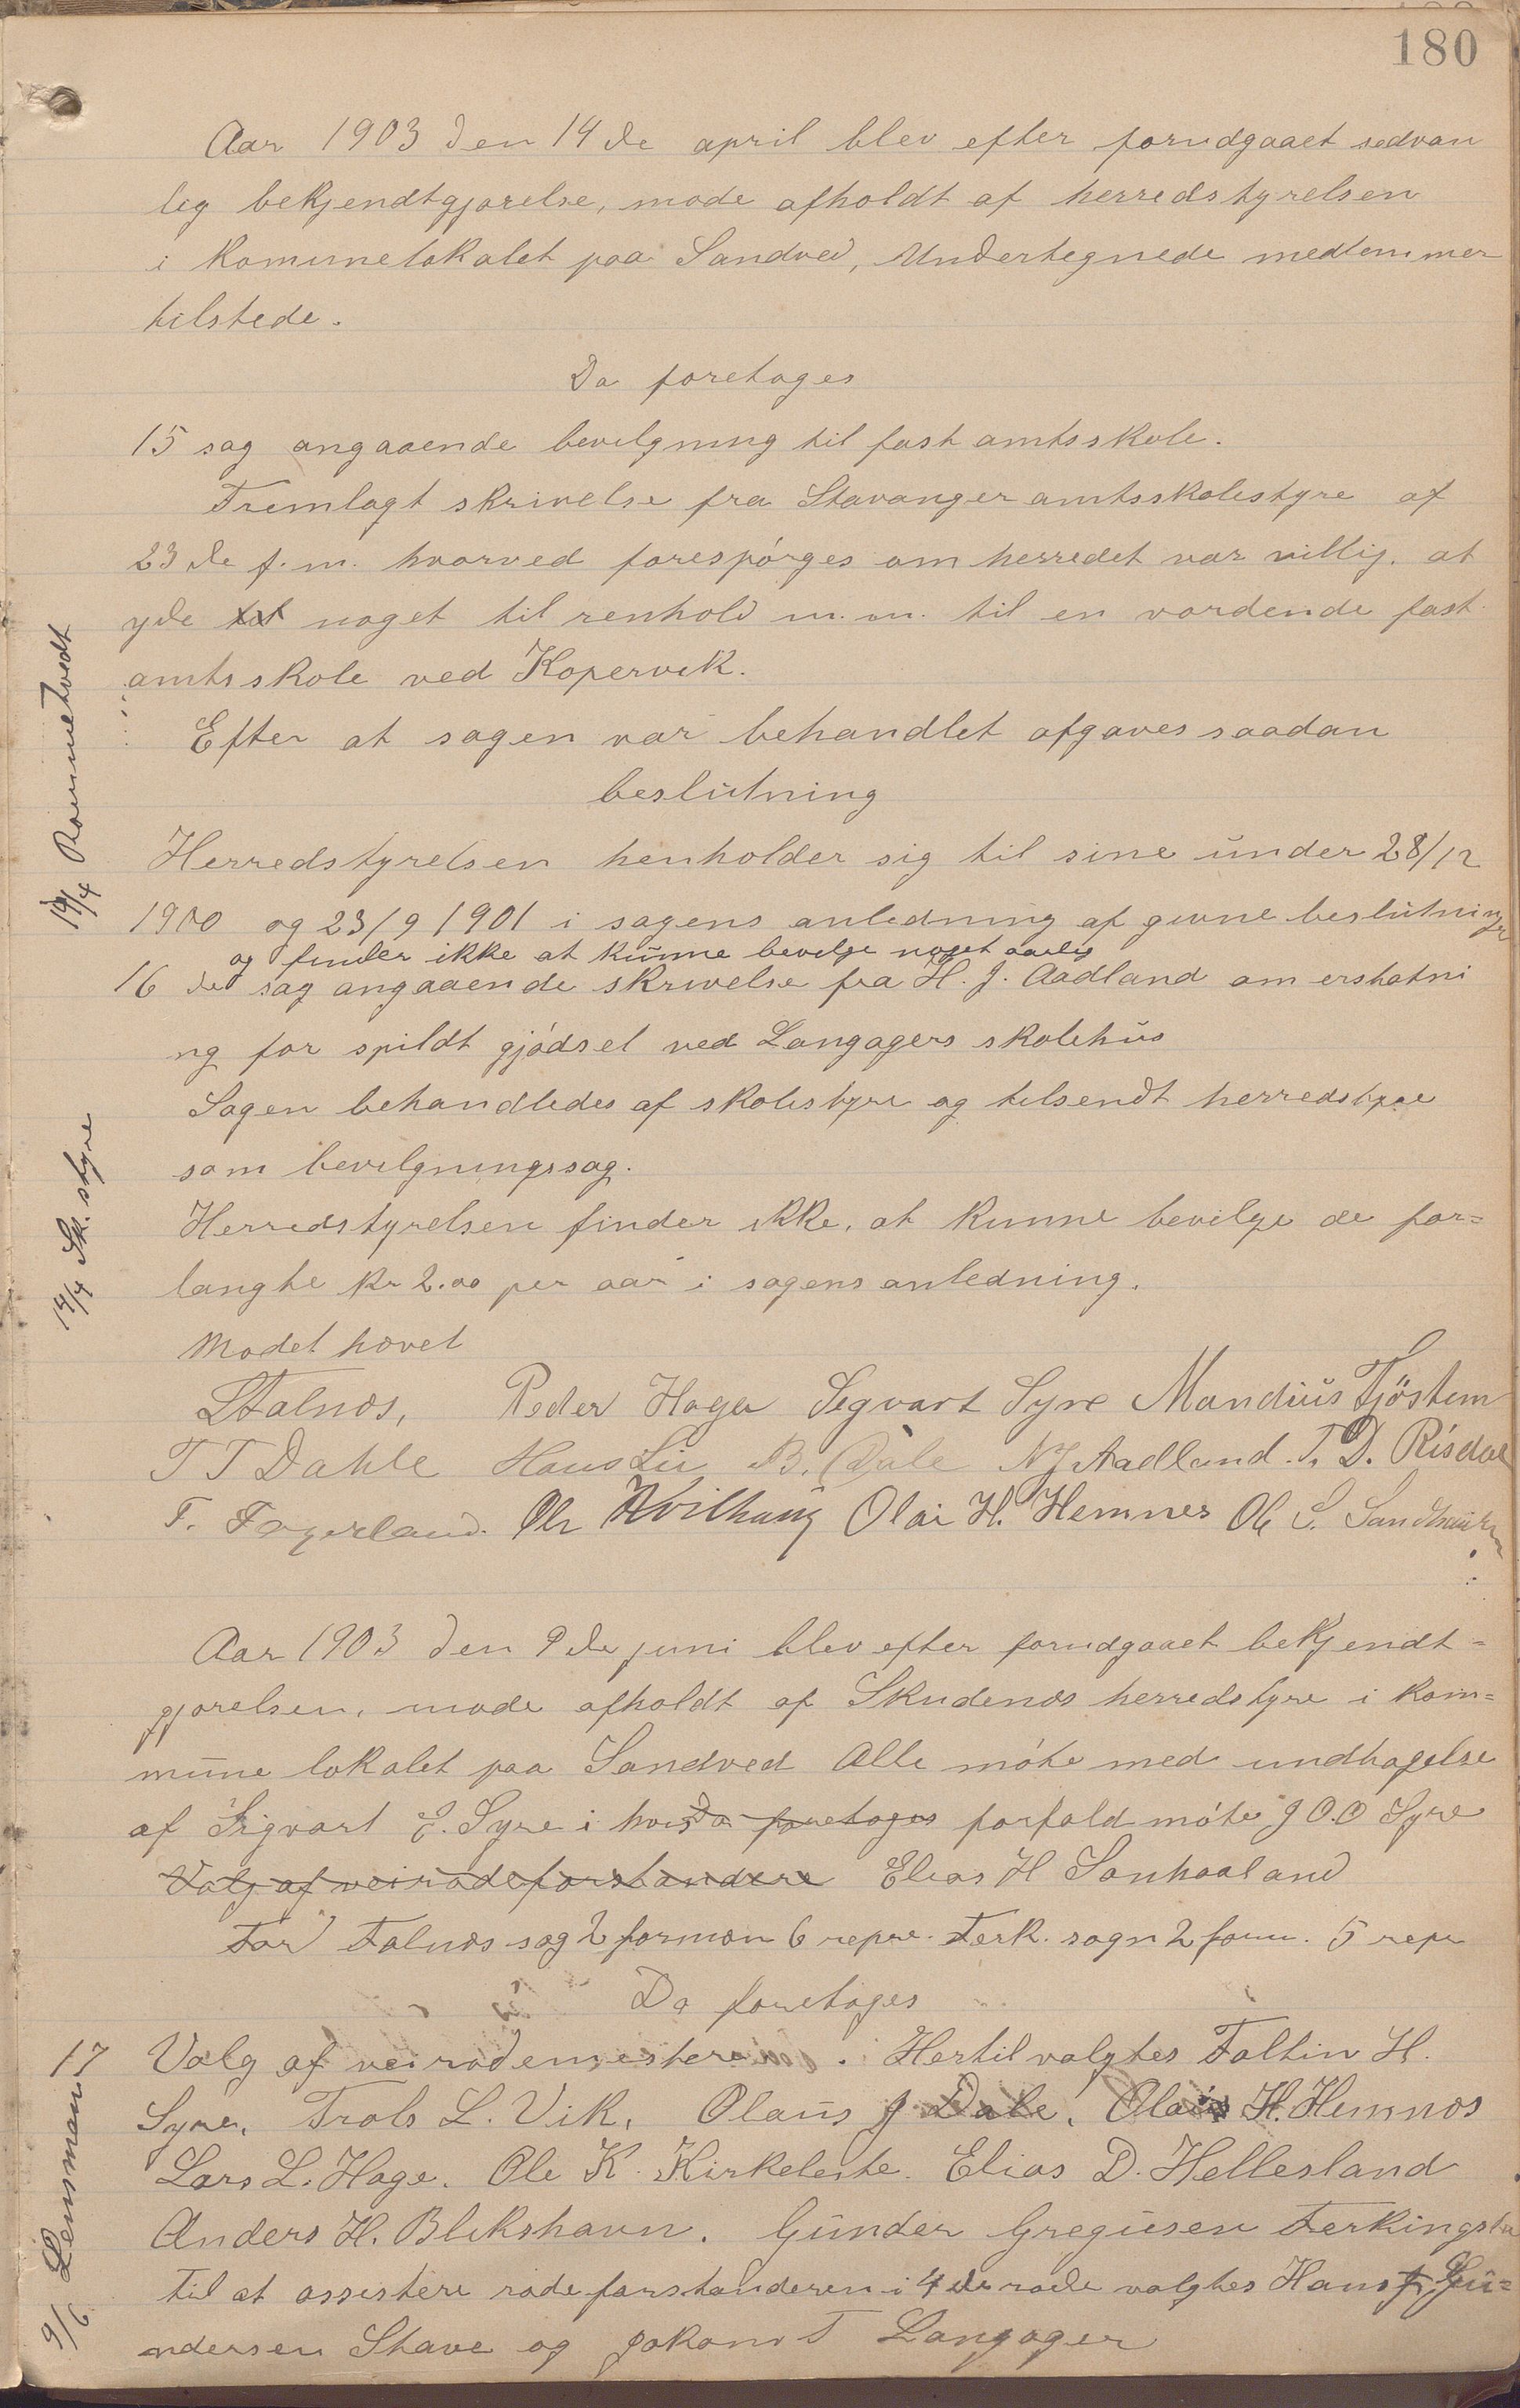 180
Aar 1903 den 14de april blev efter forudgaaet sedvan
lig bekjendtgjørelse, møde afholdt af herredstyrelsen
i Komunelokalet paa Sandved, Undertegnede medlemmer
tilstede.
Da foretoges
15 sag angaaende bevilgning til fast amtsskole.
Fremlagt skrivelse fra Stavanger amtsskolestyre af
23de f.m. hvorved forespørges om herredet var villig. at
yde noget til renhold m.m. til en vordende fast
amtsskole ved Kopervik.
14/4 Rommetvedt
Efter at sagen var behandlet afgaves saadan
beslutning
Herredstyrelsen henholder sig til sine under 28/12
1900 og 23/9 1901 i sagens anledning af givne beslutninger
og finder ikke at kunne bevilge noget aarlig
16 de sag angaaende skrivelse fra H. J. Aadland om erstatni
ng for spildt gjødsel ved Langagers skolehus
Sagen behandledes af skolestyre og tilsendt herredstyre
som bevilgningssag.
14/4 Sk. styre
Herredstyrelsen finder ikke, at kunne bevilge de for=
langte kr 2.00 per aar i sagens anledning.
Mødet hævet
S Falnæs, Peder Hage Segvart Syre Mandius Tjøstem
T T Dahle Hans Lie B. Dale N J Aadland. T. D. Risdal
T. Fagerland. Ole Hvilhaug Olai H. Hemnes Ole S. Sandhauken
Aar 1903 den 9de juni blev efter forudgaaet bekjendt=
gjørelsen, møde afholdt af Skudenæs herredstyre i kom=
mune lokalet paa Sandved Alle møte med undtagelse
af Sigvart E. Syre i hvis Da foretoges forfald møte J O.O Syre
Valg af veirodeforstandere Elias H Sanhaaland
For Falnæs sog 2 formæn 6 repre. Ferk. sogn 2 form. 5 repr
Da foretoges
17 Valg af veirodemestere . Hertil valgtes Faltin H.
Syre, Trols L. Vik, Olaus J Dale, Olai H. Hemnæs
Lars L. Hage. Ole K. Kirkeleite. Elias D. Hellesland
Anders H. Blikshavn. Gunder Gregusen Ferkingstad
9/6 Lensmann
til at assistere rodeforstanderen i 4de rode valgtes Hans Gu=
ndersen Stave og Jakom T Langager